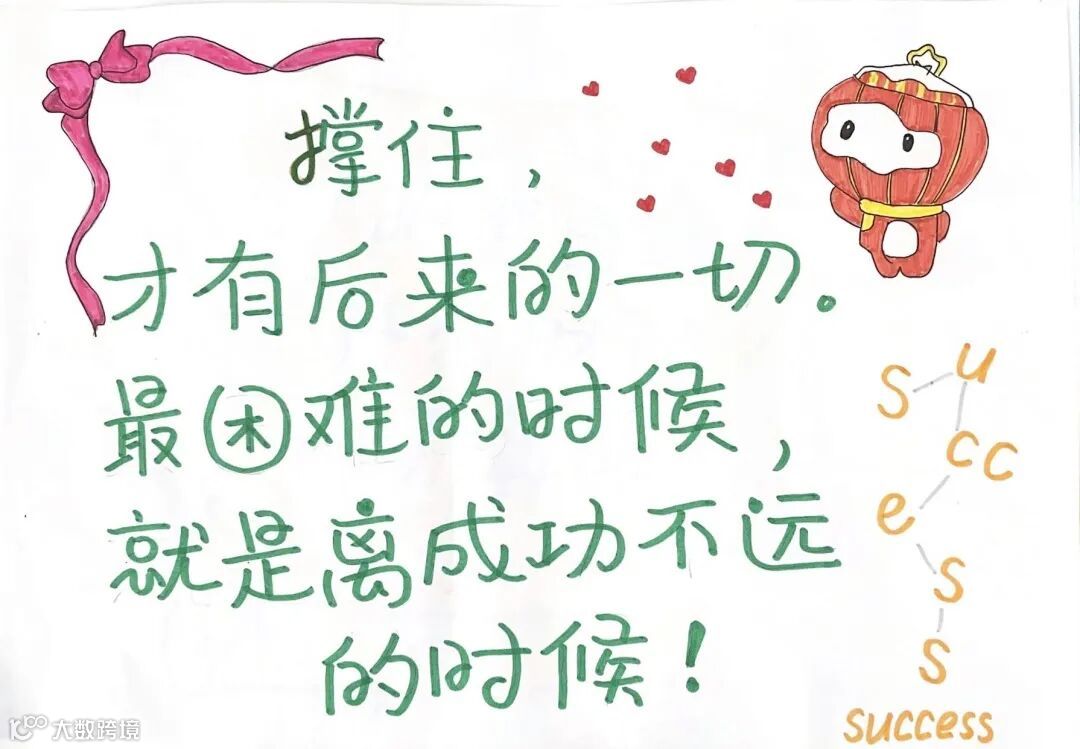 撑住，
才有后来的一切。
最困难的时候，
就是离成功不远
的时候！
s u
cc
e
s
s
success
大数跨境